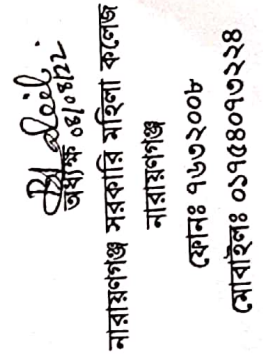 অধ্যক্ষ ০৪/০৪/২২
নারায়ণগঞ্জ সরকারি মহিলা কলেজ
নারায়ণগঞ্জ
ফোনঃ ৭৬৩২০০৮
মোবাইলঃ ০১৭৫৪০৭৩২২৪